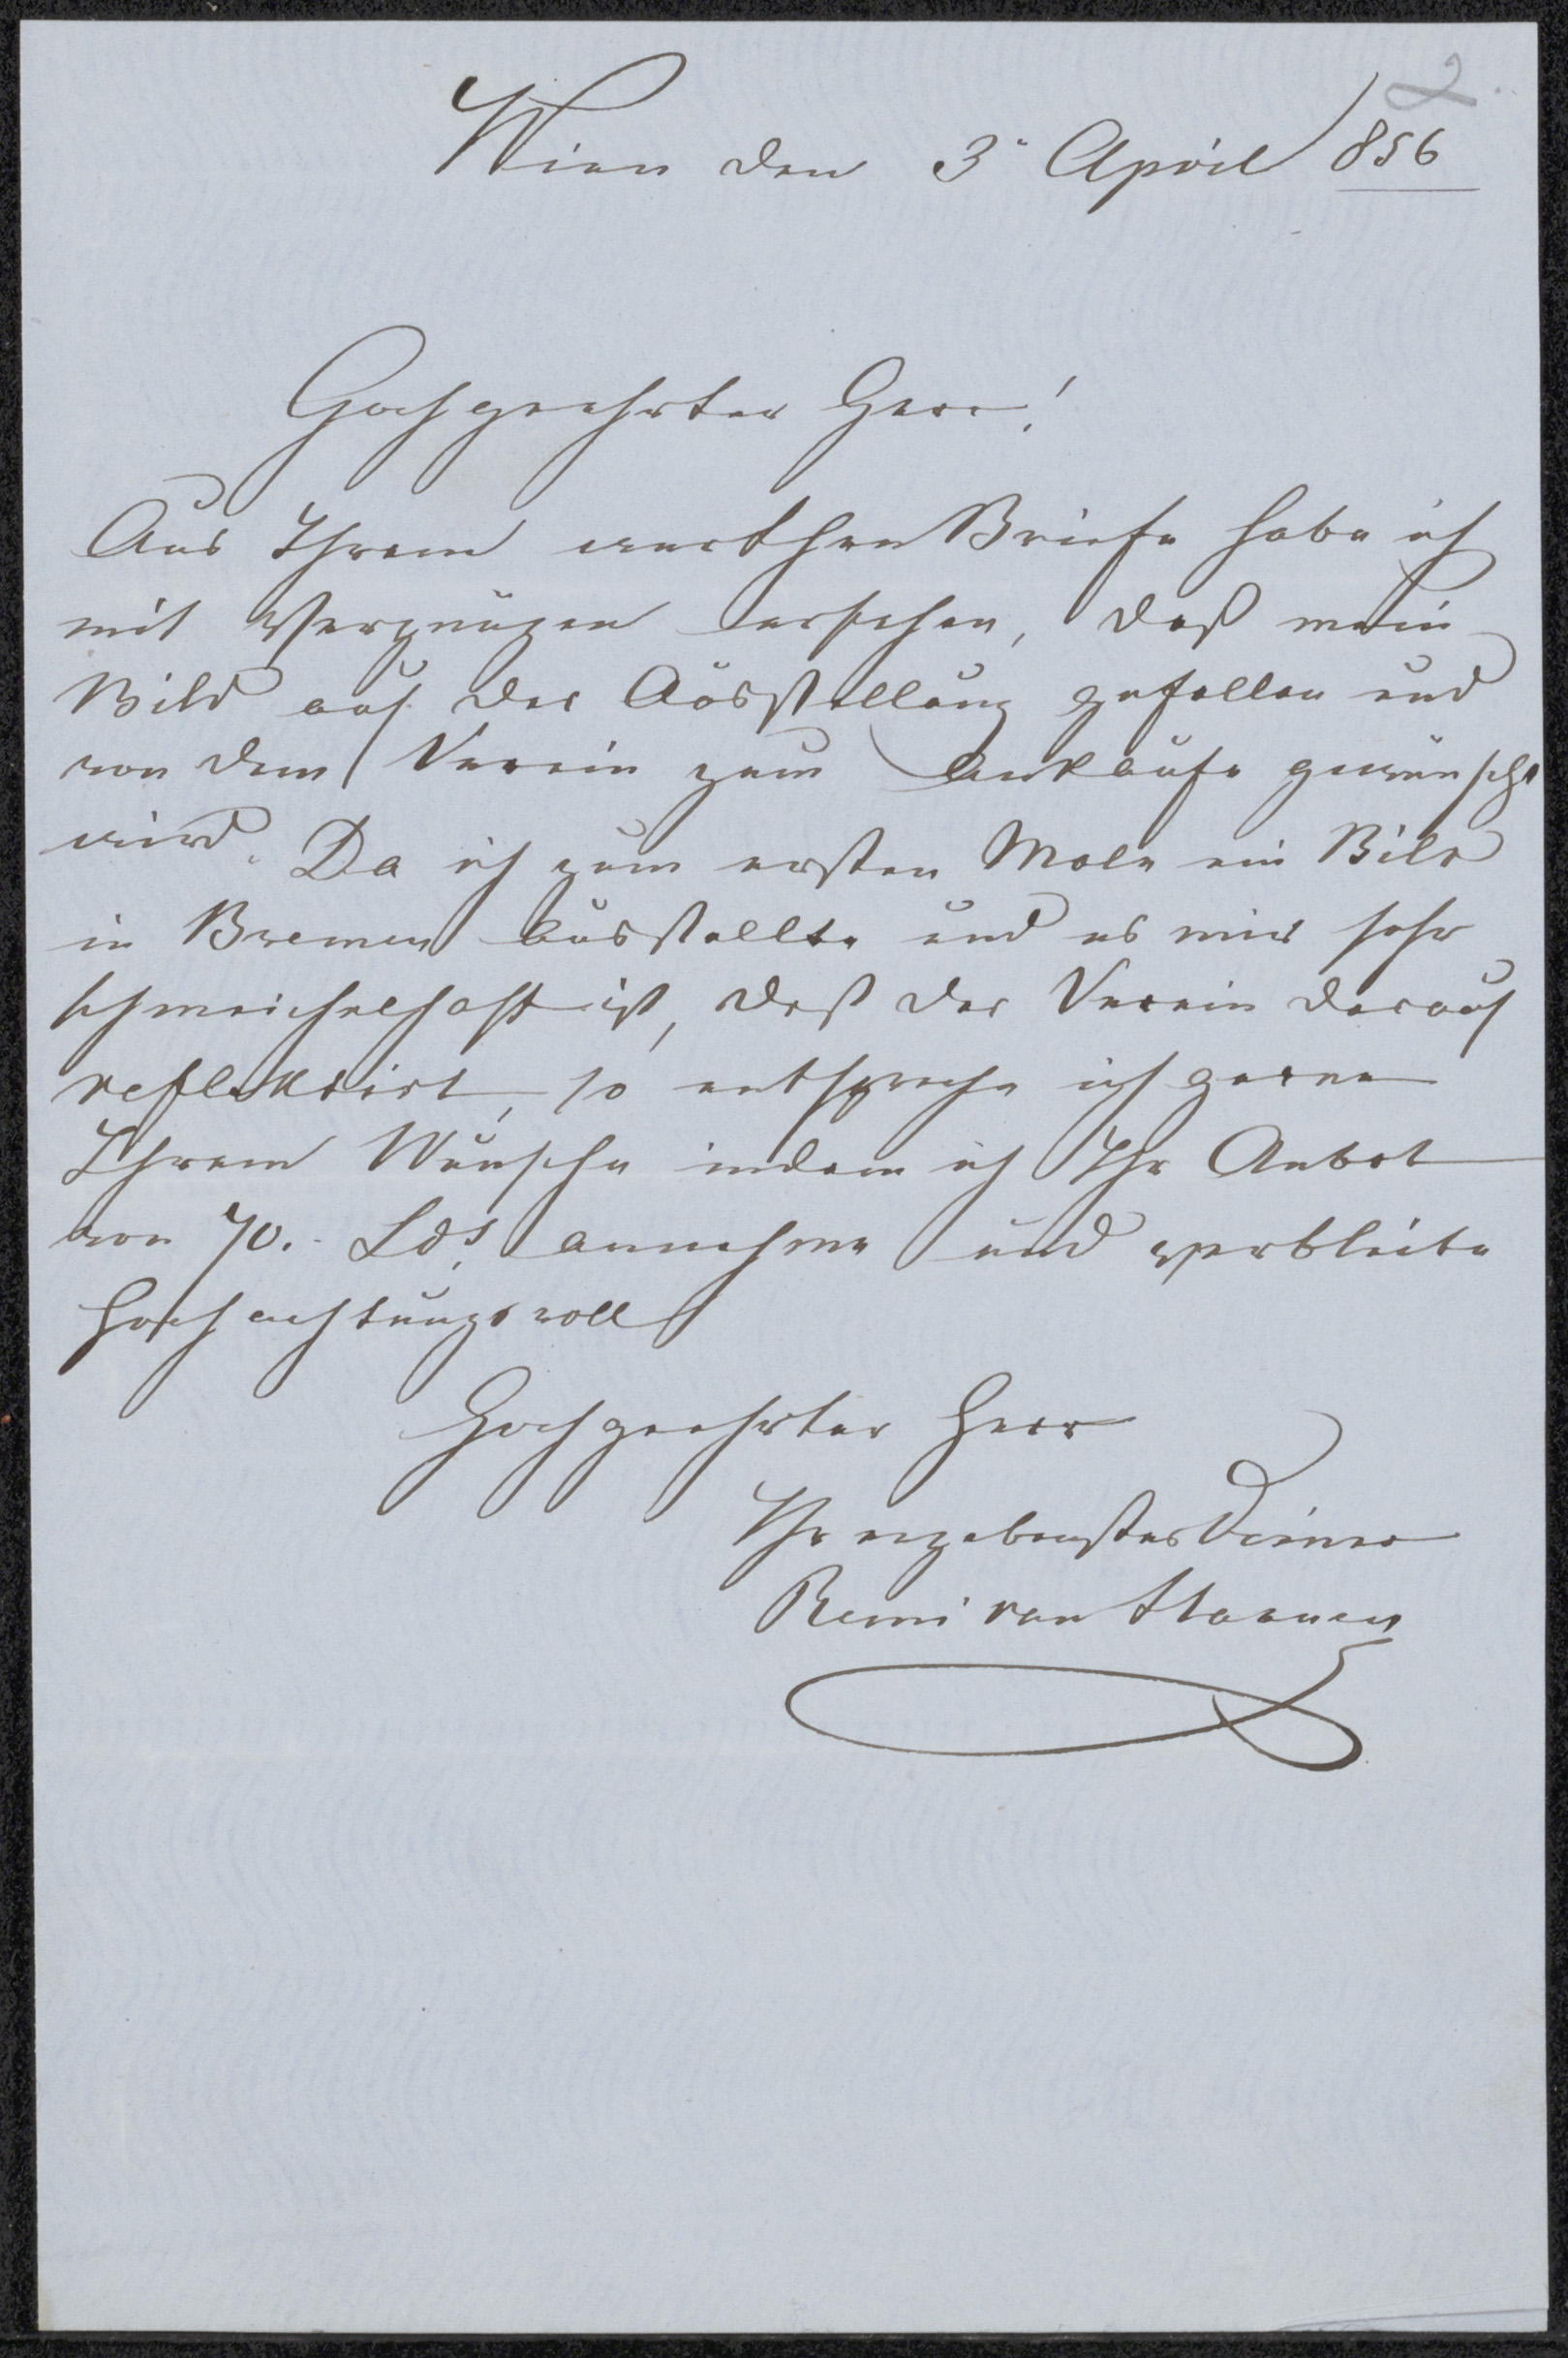 2.
Wien den 3. April 1856
Hochgeehrter Herr!
Aus Ihrem werthen Briefe habe ich
mit Vergnügen ersehen, daß mein
Bild auf der Ausstellung gefallen und
von dem Verein zum Ankaufe gewünscht
wird. Da ich zum ersten Male ein Bild
in Bremen ausstellte und es mir sehr
schmeichelhaft ist, daß der Verein darauf
reflektirt, so entspreche ich gerne
Ihrem Wunsche indem ich Ihr Anbot
von 70.- Lds. annehme und verbleibe
hochachtungsvoll
Hochgeehrter Herr
Ihr ergebenster Diener
Remi van Haanen